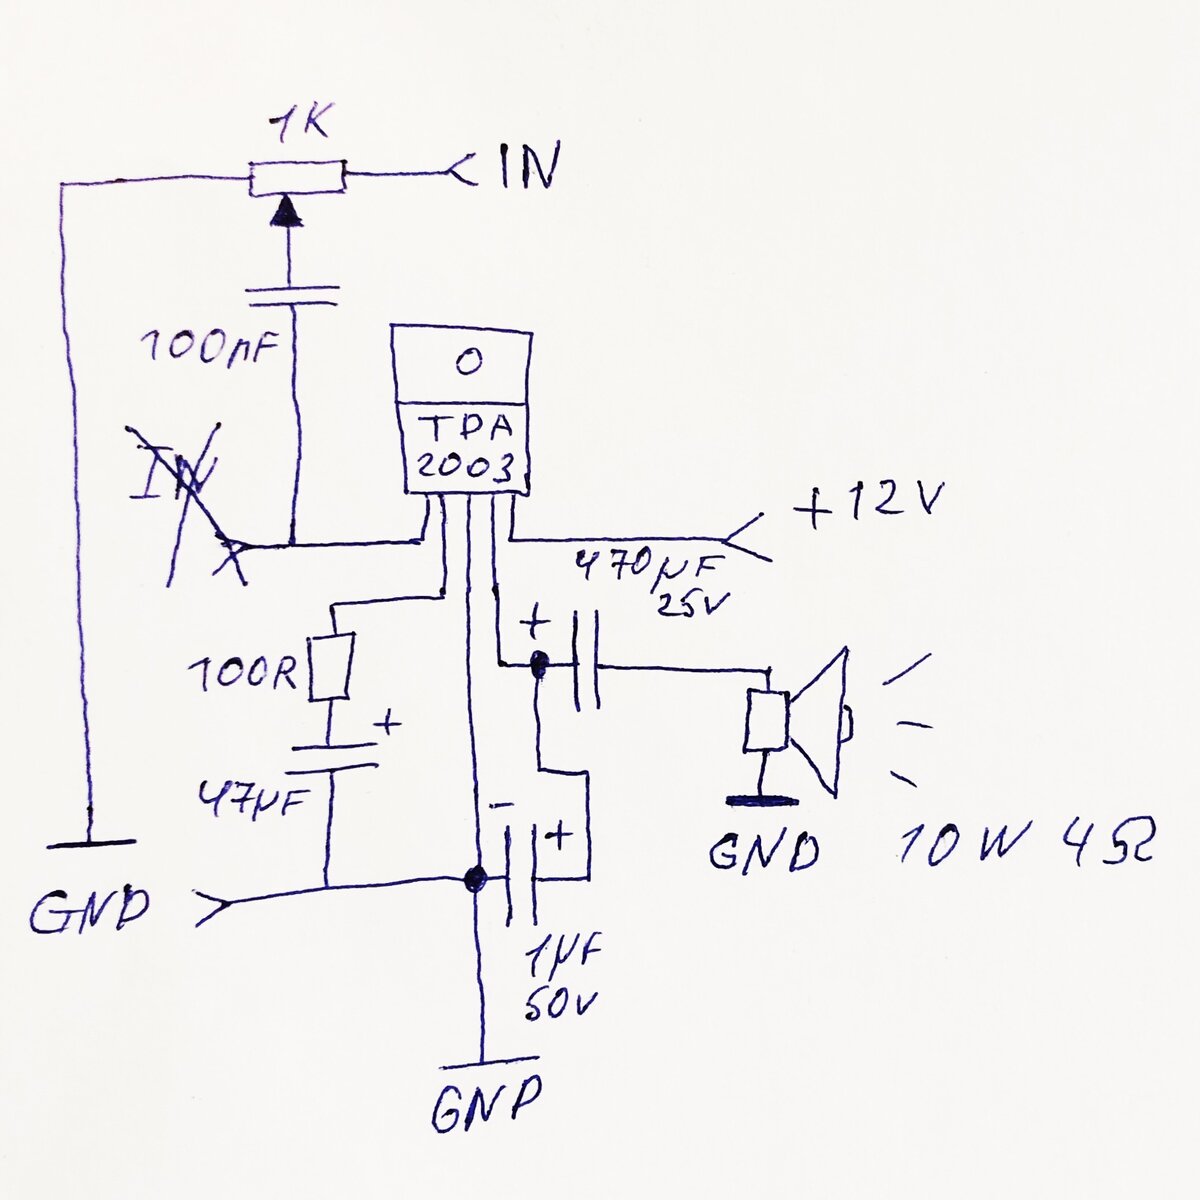 1K
IN
100nF
O
TDA
2003
IN
+12V
470µF
25V
+
100R
+
47µF
-
+
GND
10W 4Ω
GND
1µF
50V
GND